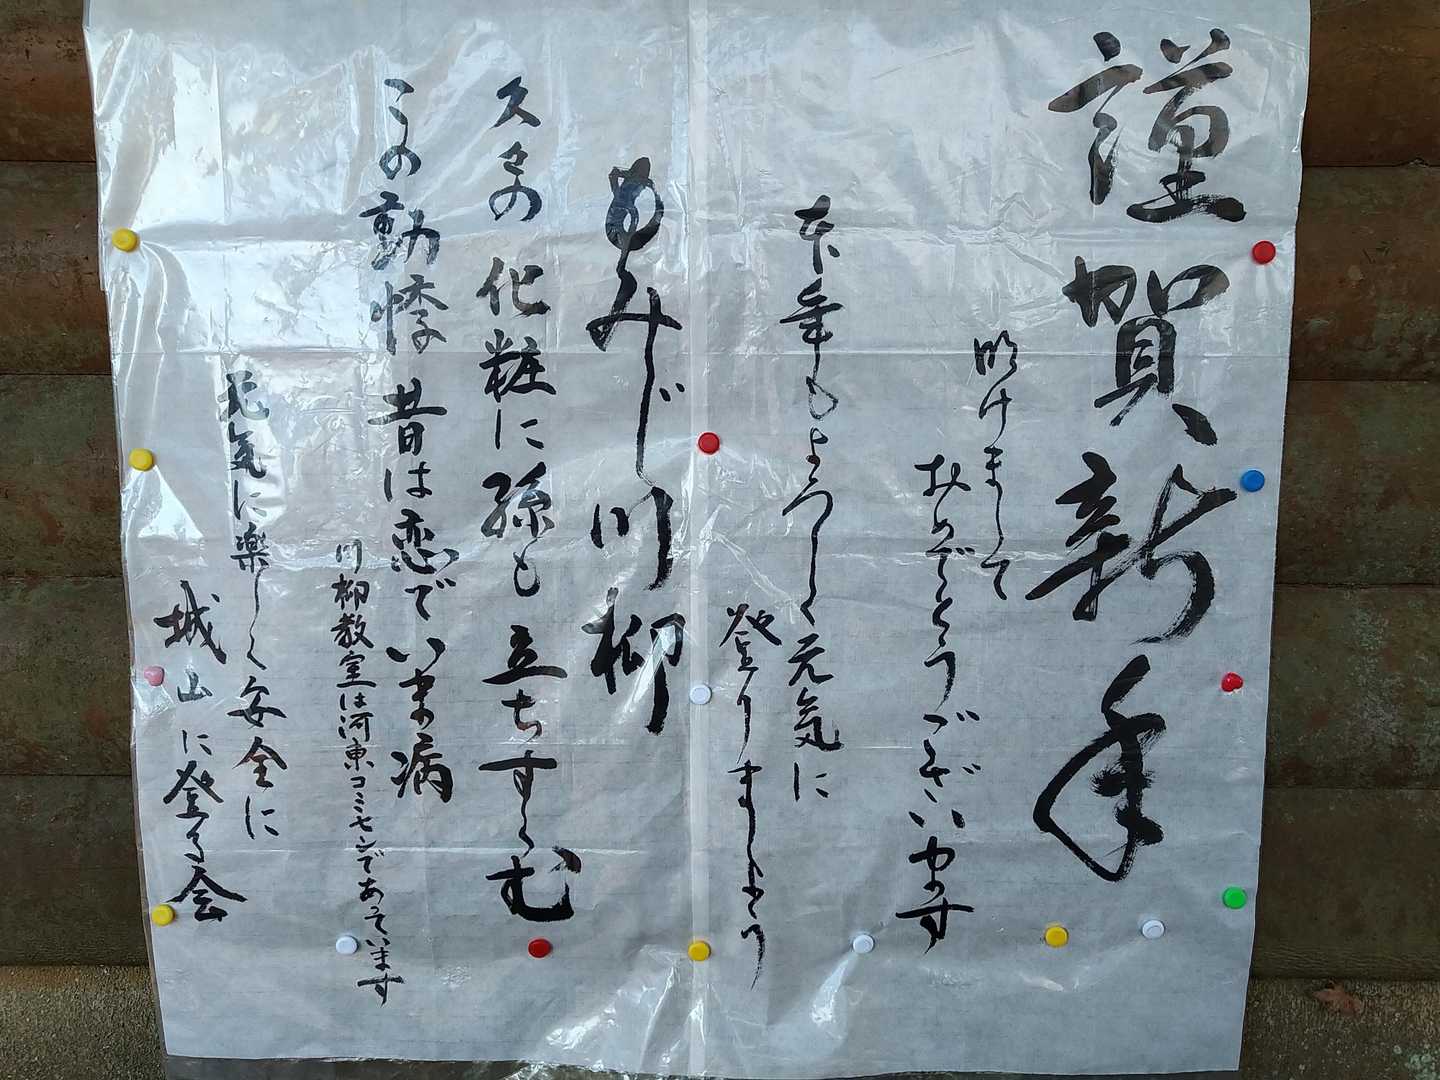 謹賀新年
明けまして
おめでとうございます
本年もよろしく元気に
登りましょう
もみじ川柳
久々の化粧に孫も立ちすくむ
この動悸昔は恋でいま病
川柳教室は河東コミセンであっています
元気に楽しく安全に
城山に登る会